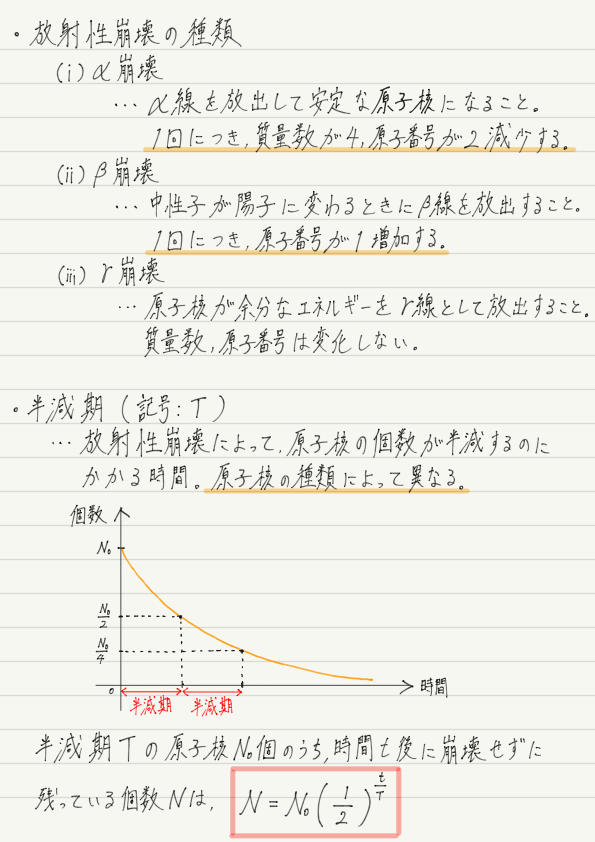 ・放射性崩壊の種類
(i) α崩壊
… α線を放出して安定な原子核になること。
1回につき,質量数が4,原子番号が2減少する。
(ii) β崩壊
… 中性子が陽子に変わるときにβ線を放出すること。
1回につき,原子番号が1増加する。
(iii) γ崩壊
… 原子核が余分なエネルギーをγ線として放出すること。
質量数,原子番号は変化しない。
・半減期(記号:T)
… 放射性崩壊によって,原子核の個数が半減するのに
かかる時間。原子核の種類によって異なる。
個数
N₀
N₀/2
N₀/4
0
時間
半減期 半減期
半減期Tの原子核N₀個のうち,時間t後に崩壊せずに
残っている個数Nは, N = N₀(1/2)^(t/T)